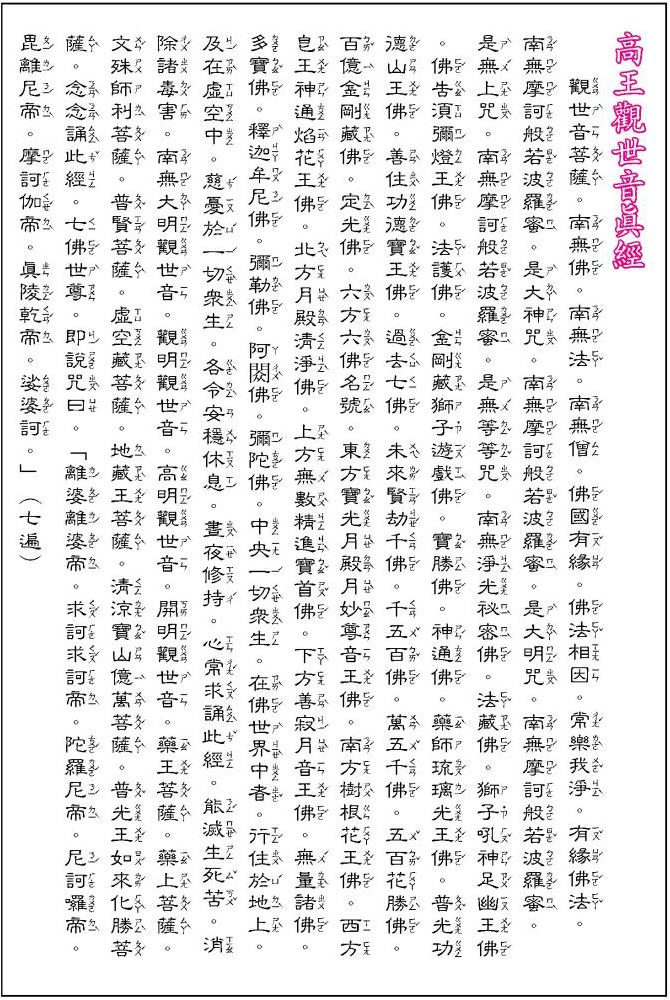 高王觀世音真經
觀世音菩薩。南無佛。南無法。南無僧。佛國有緣。佛法相因。常樂我淨。有緣佛法。
南無摩訶般若波羅蜜。是大神咒。南無摩訶般若波羅蜜。是大明咒。南無摩訶般若波羅蜜。
是無上咒。南無摩訶般若波羅蜜。是無等等咒。南無淨光祕密佛。法藏佛。獅子吼神足幽王佛
。佛告須彌燈王佛。法護佛。金剛藏獅子遊戲佛。寶勝佛。神通佛。藥師琉璃光王佛。普光功
德山王佛。善住功德寶王佛。過去七佛。未來賢劫千佛。千五百佛。萬五千佛。五百花勝佛。
百億金剛藏佛。定光佛。六方六佛名號。東方寶光月殿月妙尊音王佛。南方樹根花王佛。西方
皂王神通焰花王佛。北方月殿清淨佛。上方無數精進寶首佛。下方善寂月音王佛。無量諸佛。
多寶佛。釋迦牟尼佛。彌勒佛。阿閦佛。彌陀佛。中央一切衆生。在佛世界中者。行住於地上。
及在虛空中。慈憂於一切衆生。各令安穩休息。晝夜修持。心常求誦此經。能滅生死苦。消
除諸毒害。南無大明觀世音。觀明觀世音。高明觀世音。開明觀世音。藥王菩薩。藥上菩薩。
文殊師利菩薩。普賢菩薩。虛空藏菩薩。地藏王菩薩。清涼寶山億萬菩薩。普光王如來化勝菩
薩。念念誦此經。七佛世尊。即說咒曰。「離婆離婆帝。求訶求訶帝。陀羅尼帝。尼訶囉帝。
毘離尼帝。摩訶伽帝。真陵乾帝。娑婆訶。」（七遍）